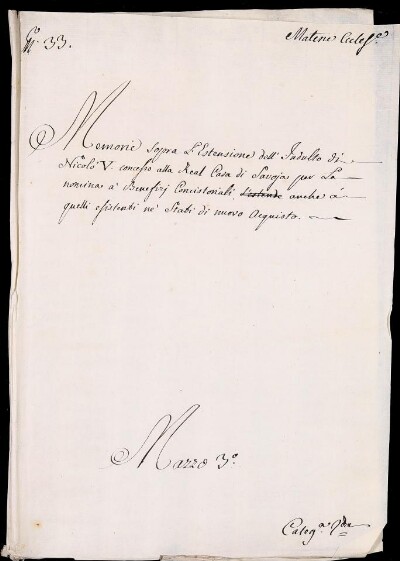 N.º 33.
Materie Eccles.e
Memorie sopra L'Estensione dell'Indulto di
Nicolò V. concesso alla Real Casa di Savoja per La
nomina a' Benefizj Concistoriali, s'estende anche à
quelli esistenti ne' Stati di nuovo Acquisto.
Mazzo 3.º
Categ.a